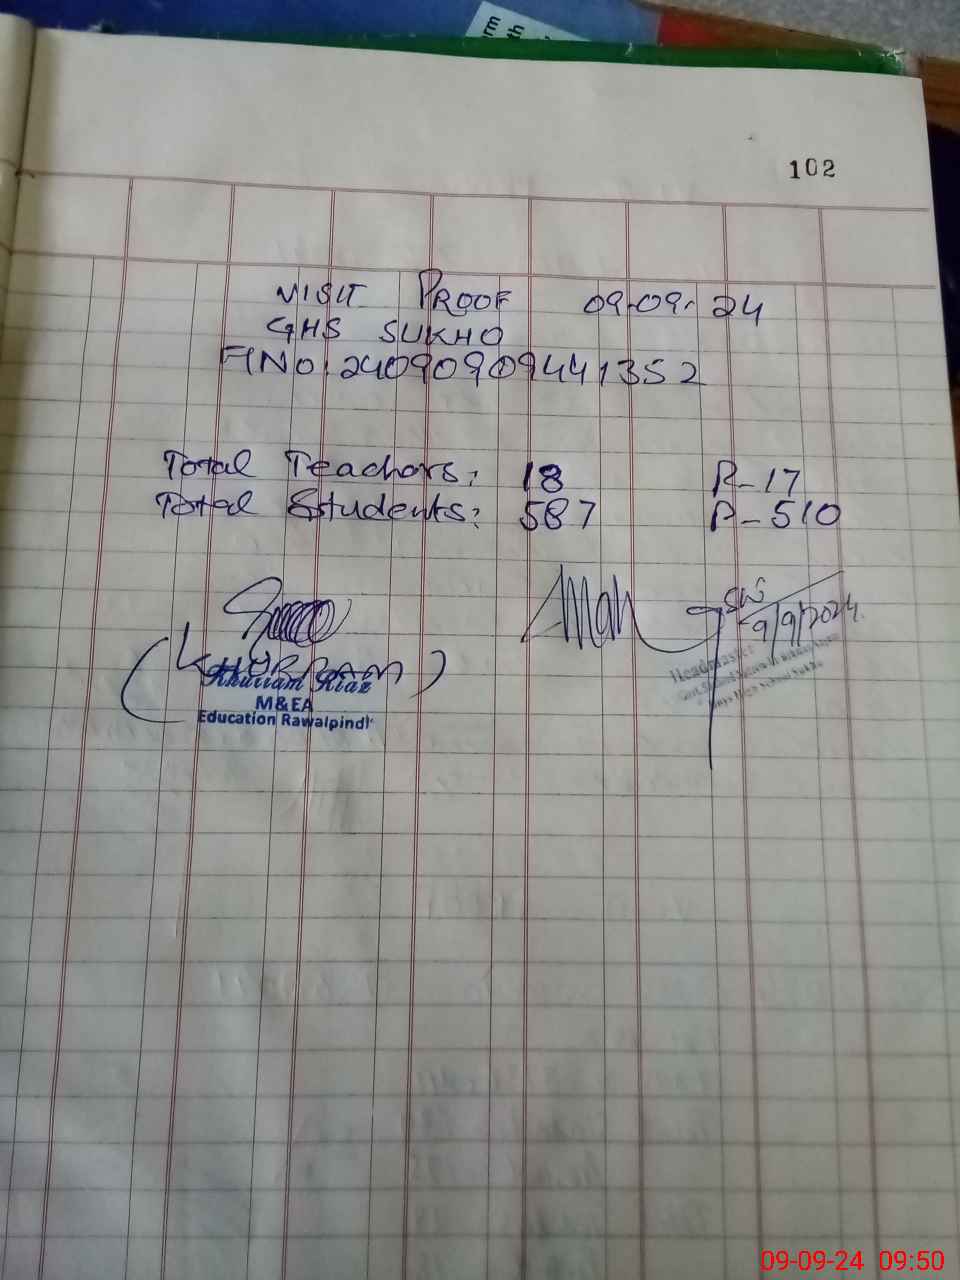 rm
th
102
VISIT PROOF 09-09-24
GHS SUKHO
A NO: 24090909441352
Total Teachers: 18 P-17
Total Students: 587 P-510
(KHURRAM)
Khurram Riaz
M&EA
Education Rawalpindi
9/9/2024.
Headmaster
Boys High School Sukho
09-09-24 09:50